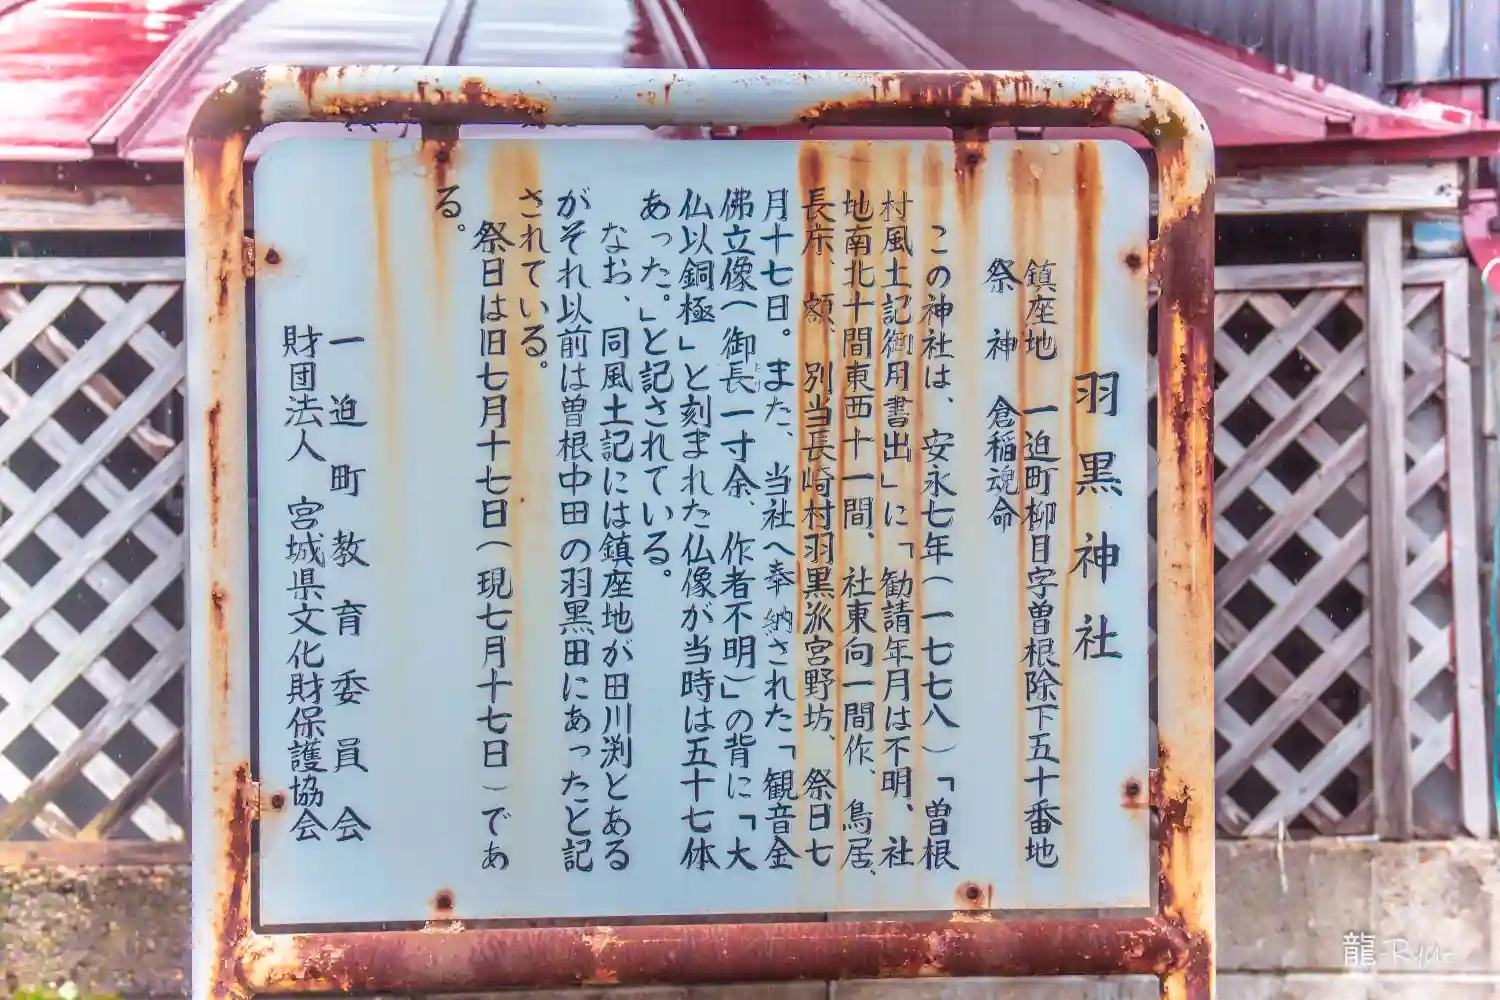 羽黒神社
鎮座地　一迫町柳目字曽根除下五十番地
祭　神　倉稲魂命
この神社は、安永七年(一七七八)「曽根
村風土記御用書出」に「勧請年月は不明、社
地南北十間東西十一間、社東向一間作、鳥居、
長床、額、別当長崎村羽黒派宮野坊、祭日七
月十七日。また、当社へ奉納された「観音金
佛立像へ御長一寸余、作者不明)」の背に「大
仏以銅極」と刻まれた仏像が当時は五十七体
あった。」と記されている。
なお、同風土記には鎮座地が田川渕とある
がそれ以前は曽根中田の羽黒田にあったと記
されている。
祭日は旧七月十七日(現七月十七日)であ
る。
一迫町教育委員会
財団法人　宮城県文化財保護協会
龍-Ryu-